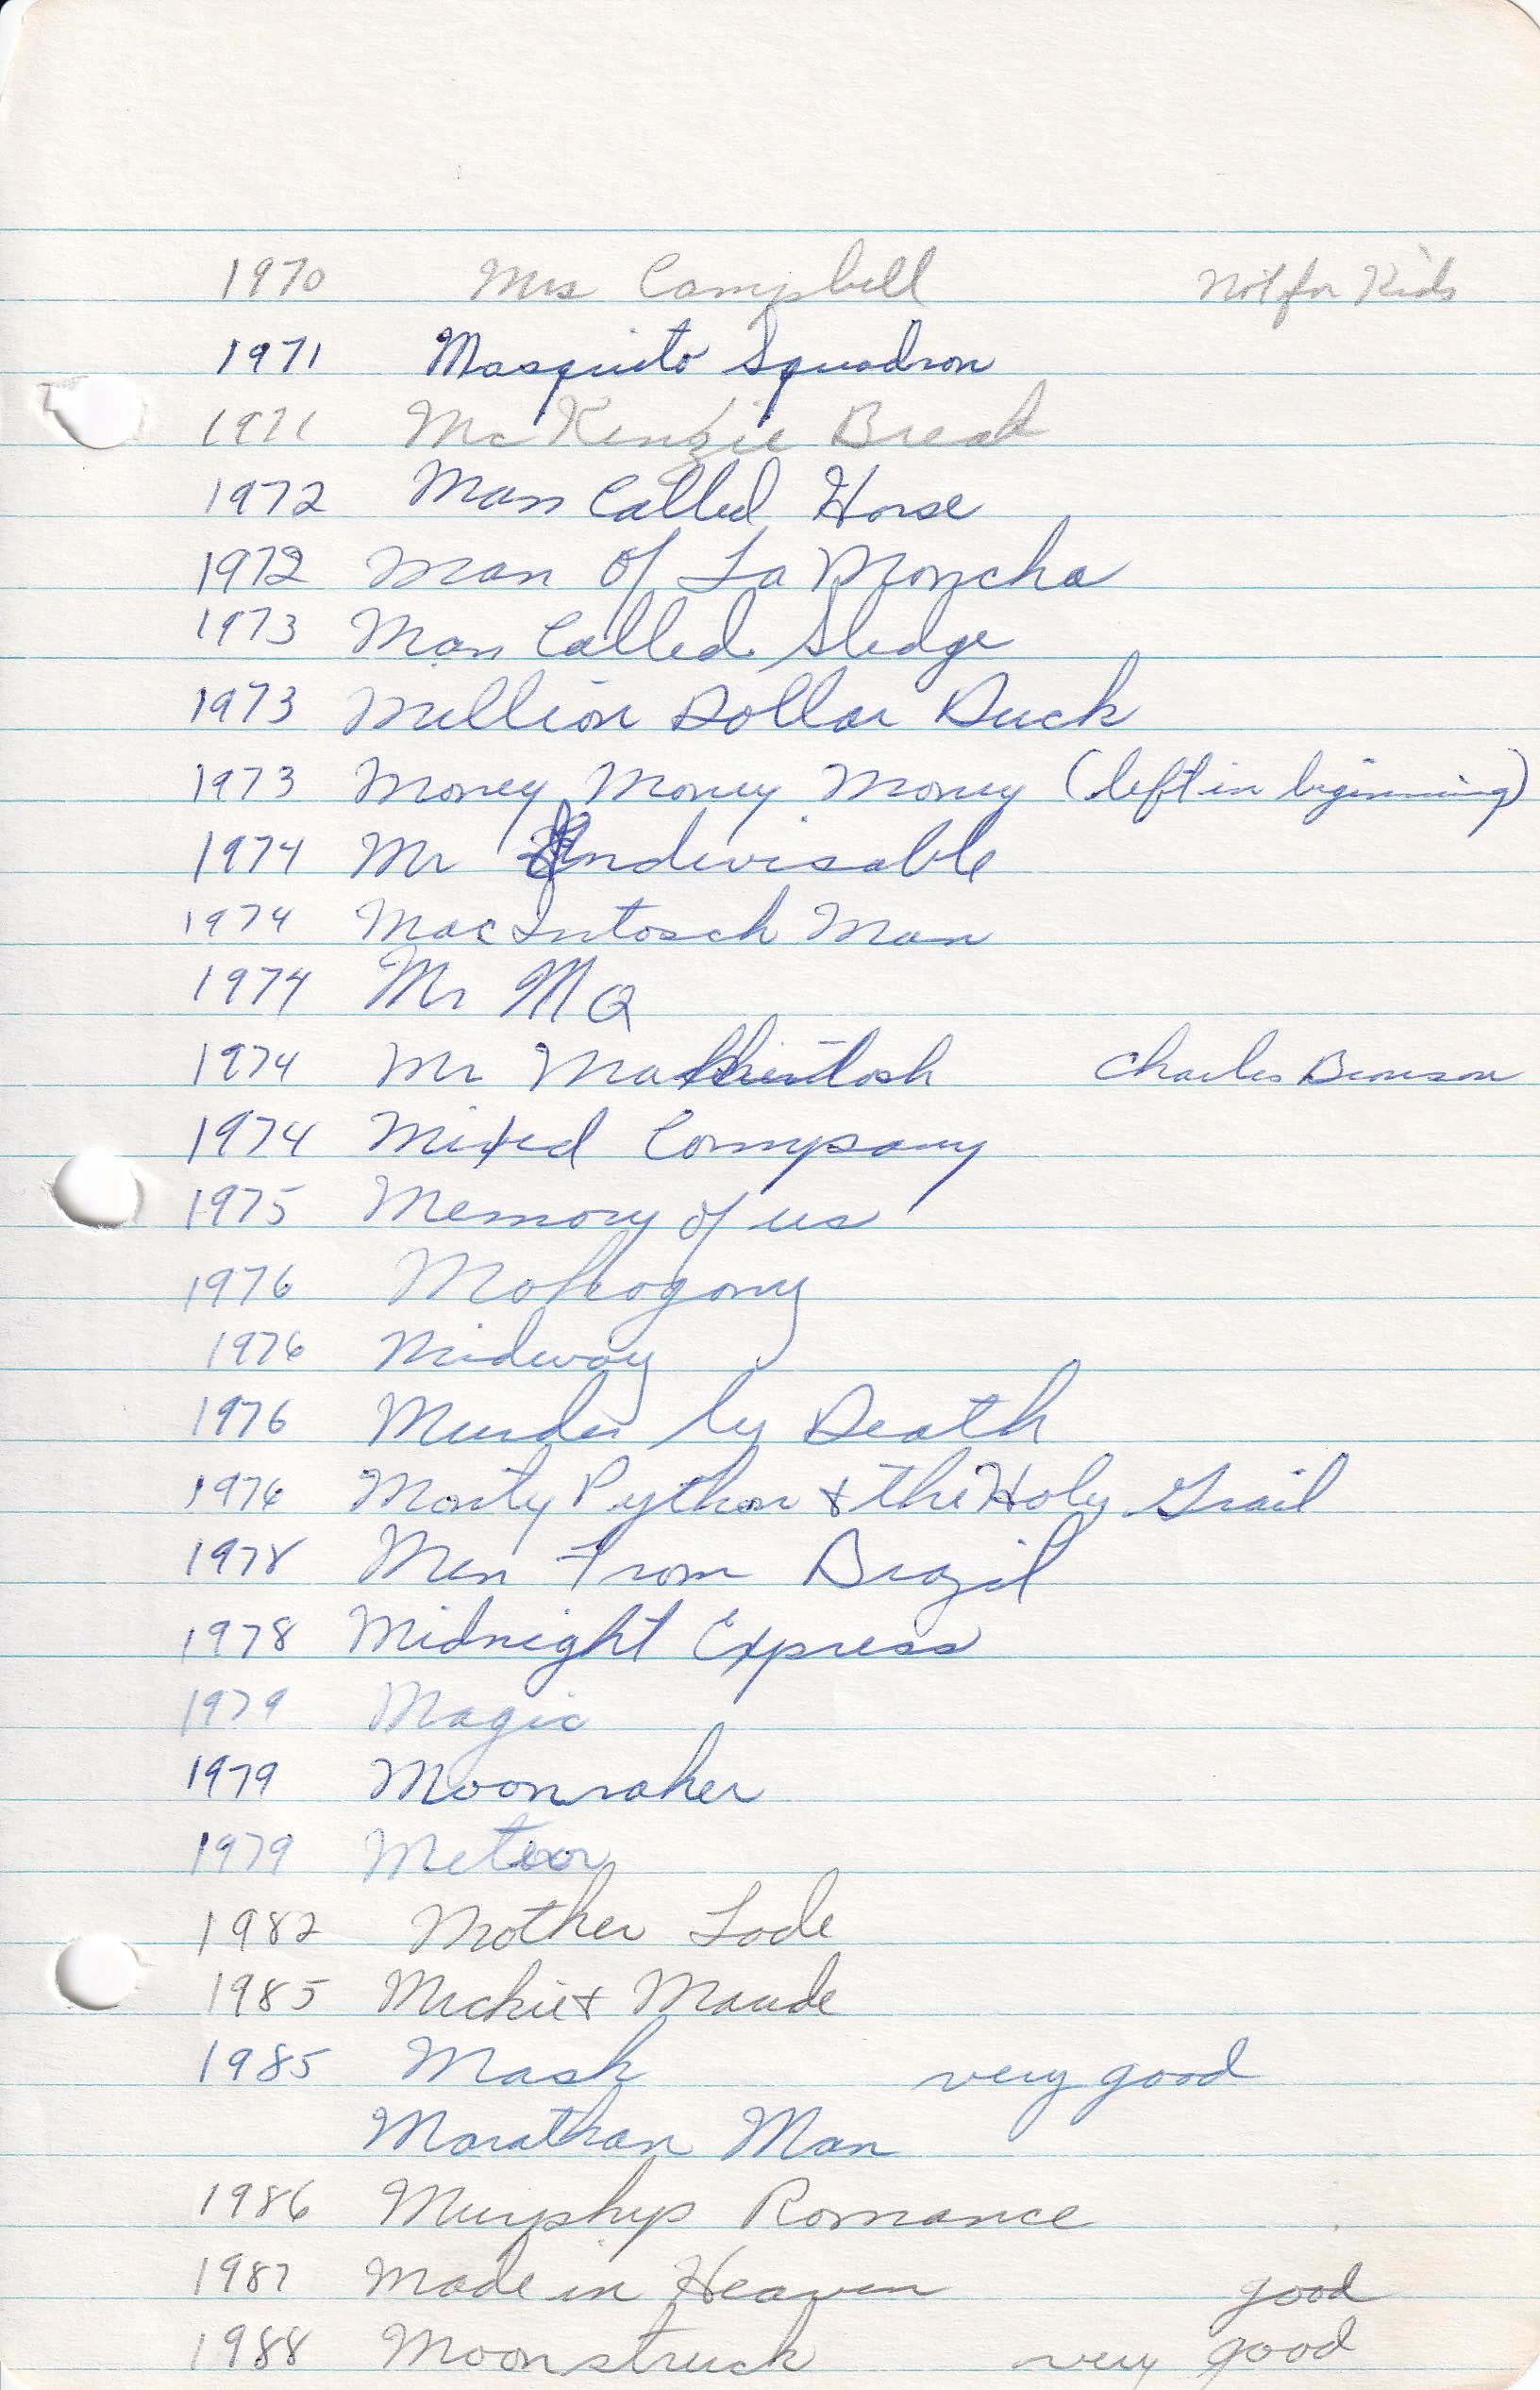 1970 Mrs Campbell Not for Kids
1971 Mosquito Squadron
1971 McKenzie Break
1972 Man Called Horse
1972 Man Of La Moncha
1973 Man Called Sledge
1973 Million Dollar Duck
1973 Money Money Money (left in beginning)
1974 Mr Indivisable
1974 MacIntosch Man
1974 Mr MQ
1974 Mr Charles Bronson
1974 Mixed Company
1975 Memory of us
1976 Mohogony
1976 Midway
1976 Murder by Death
1976 Monty Python & the Holy Grail
1978 Men From Brazil
1978 Midnight Express
1979 Magic
1979 Moonraker
1979 Meteor
1982 Mother Lode
1985 Mickie & Maude
1985 Mask very good
Marathan Man
1986 Murphys Romance
1987 Made in Heaven good
1988 Moonstruck very good